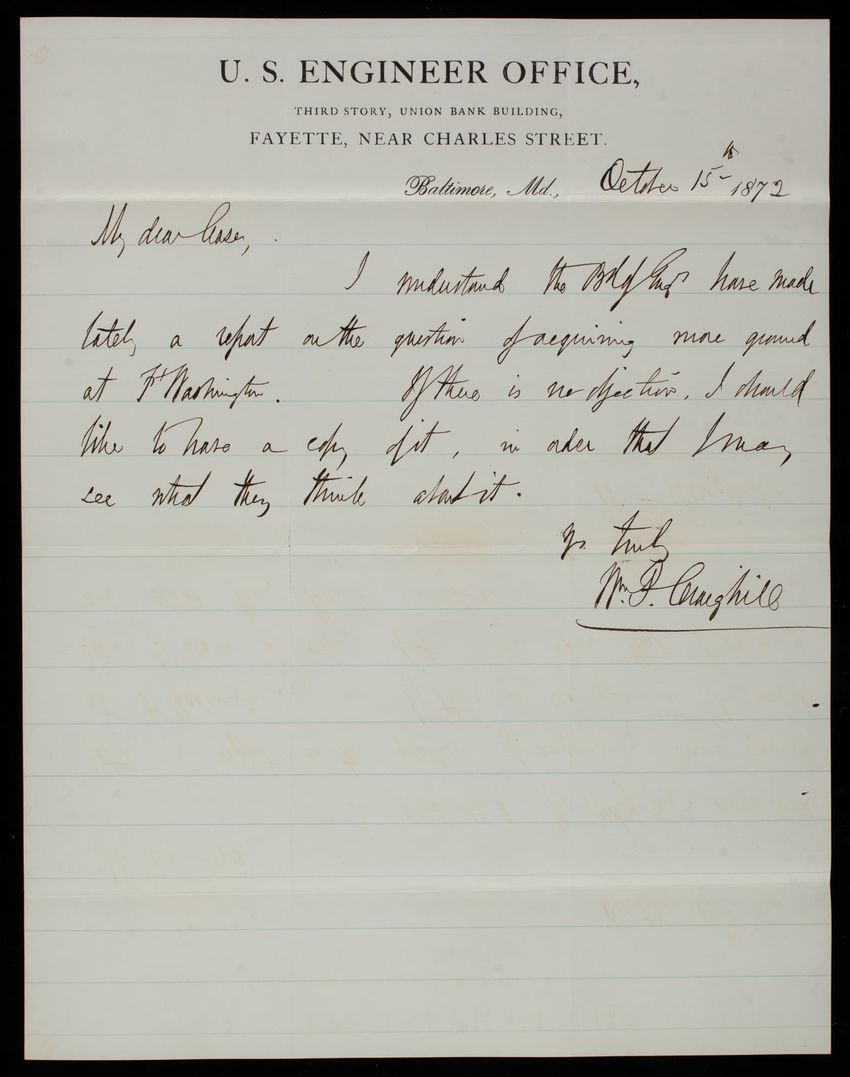 U. S. ENGINEER OFFICE,
THIRD STORY, UNION BANK BUILDING,
FAYETTE, NEAR CHARLES STREET.
Baltimore, Md., October 15th 1872
My dear Casey,
I understand the Bd of Engrs have made
lately a report on the question of acquiring more ground
at Ft Washington. If there is no objection, I should
like to have a copy of it, in order that I may
see what they think about it.
Yrs truly
Wm. P. Craighill